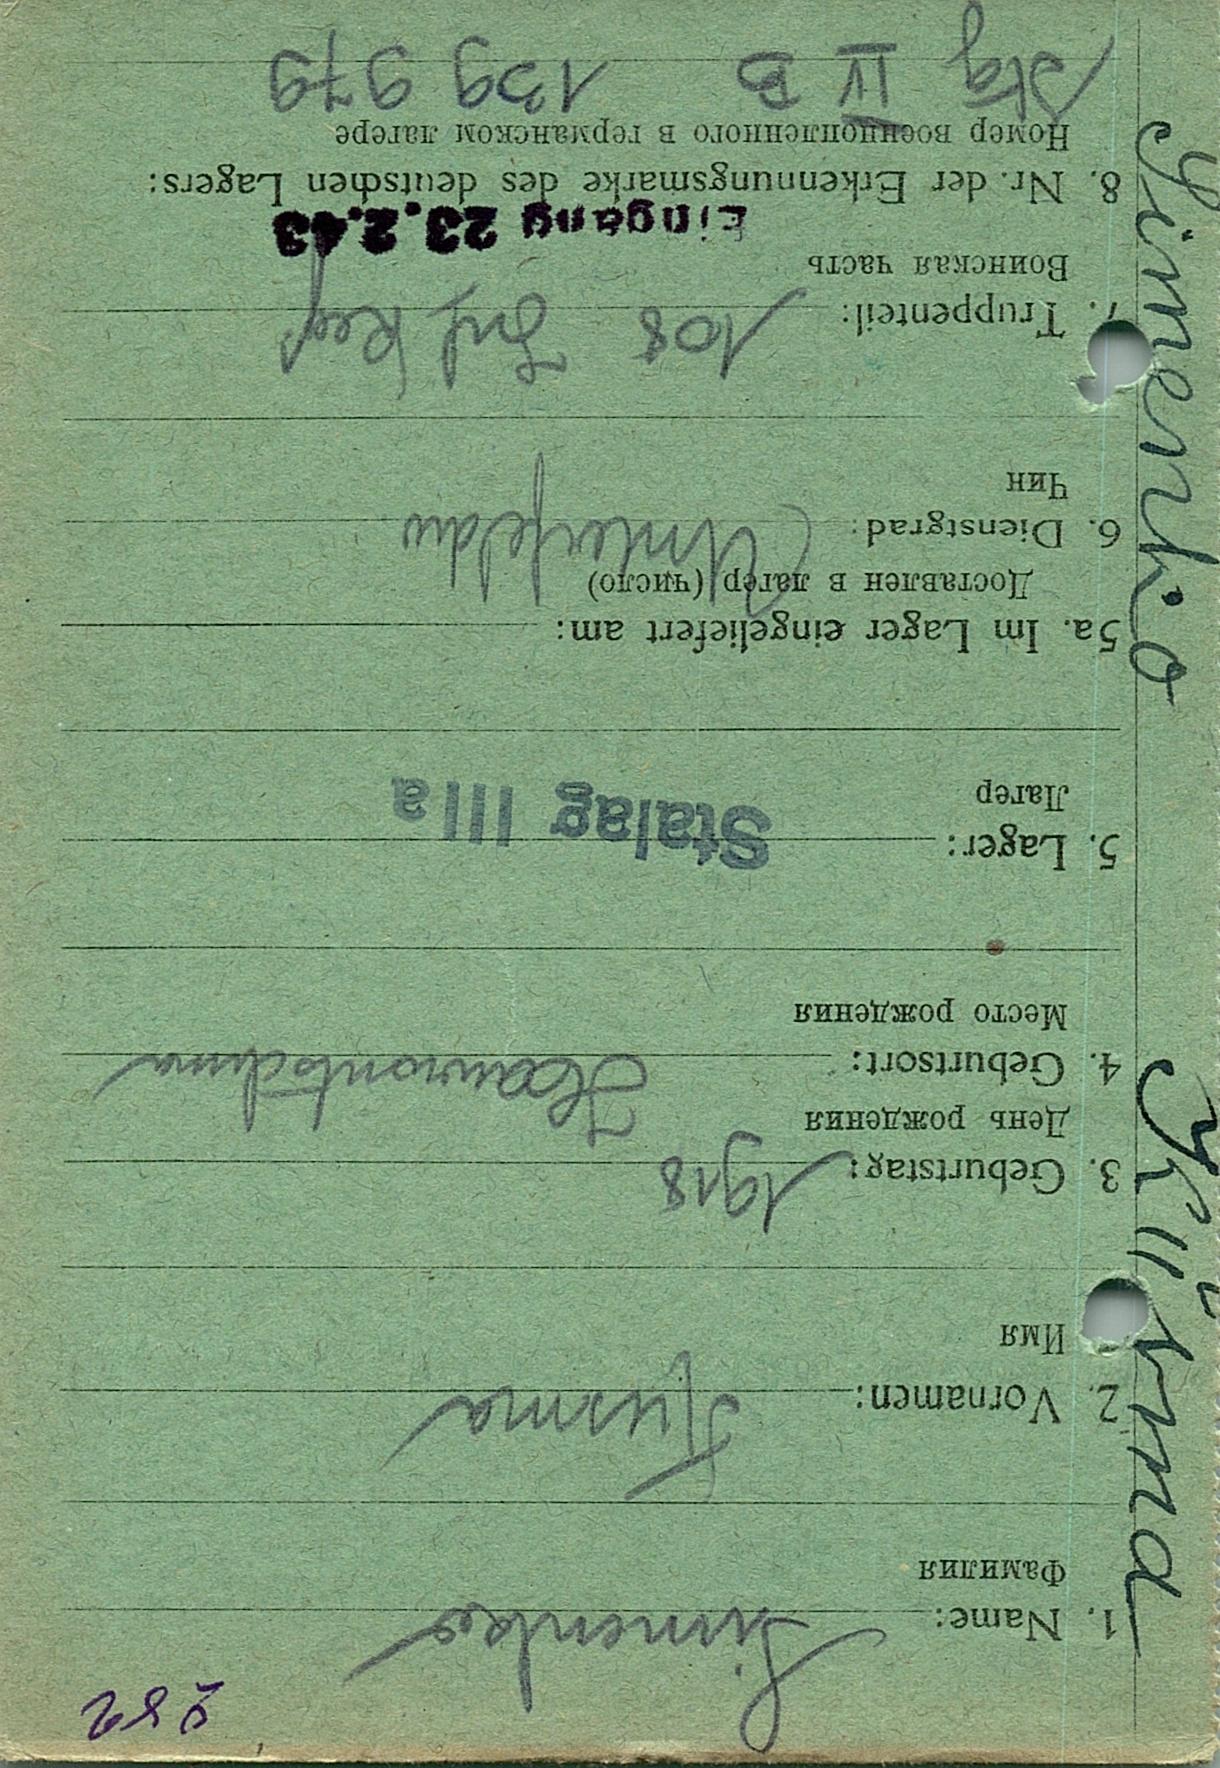 282
1. Name: Simenko
Фамилия
2. Vornamen: Kusma
Имя
3. Geburtstag: 1918
День рождения
4. Geburtsort:
Место рождения
5. Lager: Stalag IIIa
Лагер
5a. Im Lager eingeliefert am:
Доставлен в лагер (число)
6. Dienstgrad:
Чин
7. Truppenteil: 108 Inf Reg
Воинская часть
Eingang 23.2.43
8. Nr. der Erkennungsmarke des deutschen Lagers:
Номер военнопленного в германском лагере
Stlg IV B 139 979
Simenko
Kusma